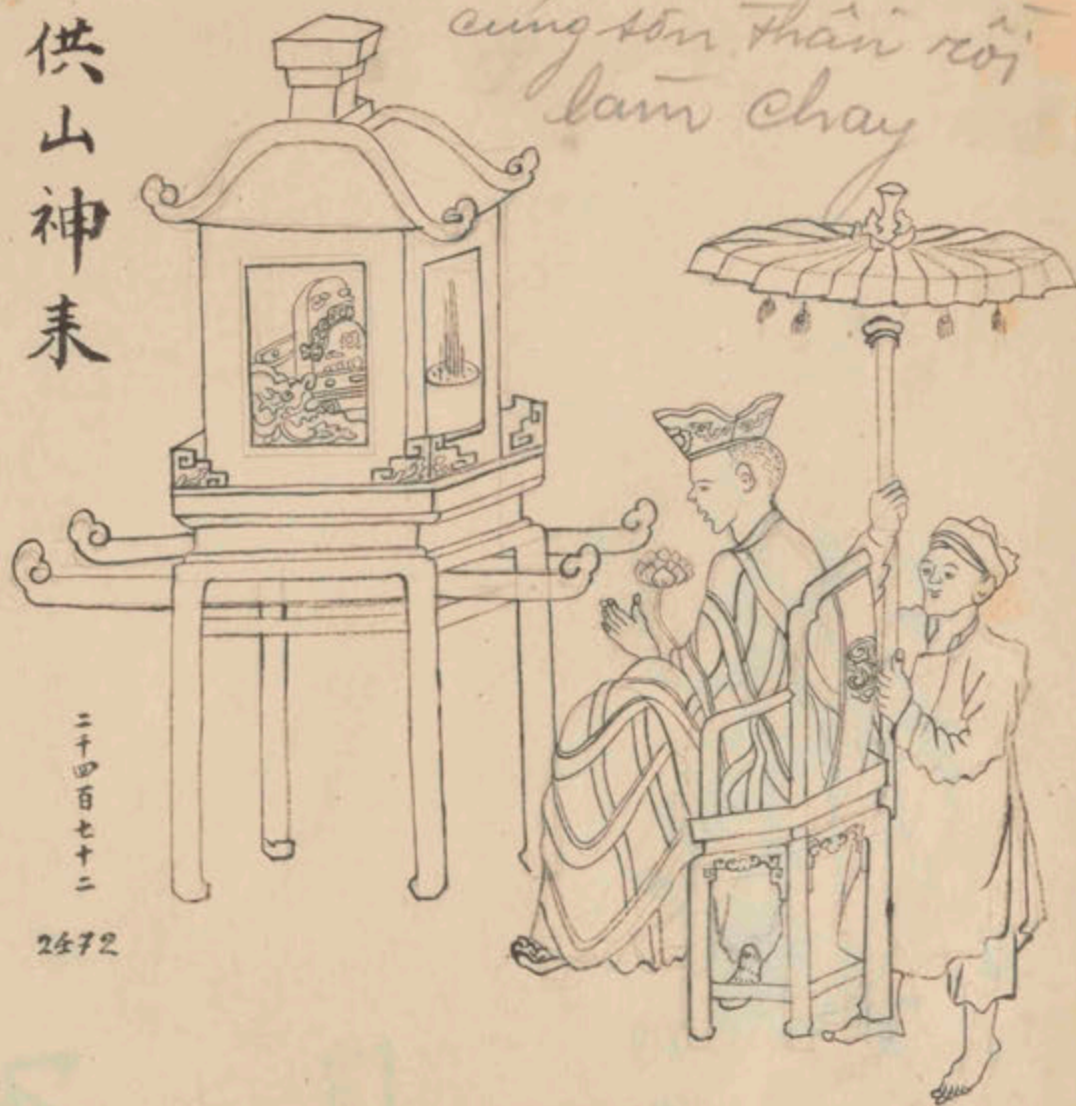 供山神耒
cung sơn Thần rồi
làm chay
二千四百七十二
2472